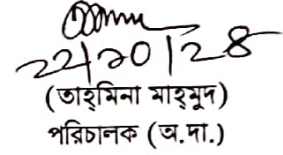 ২২/১০/২৪
(তাহ্‌মিনা মাহ্‌মুদ)
পরিচালক (অ.দা.)